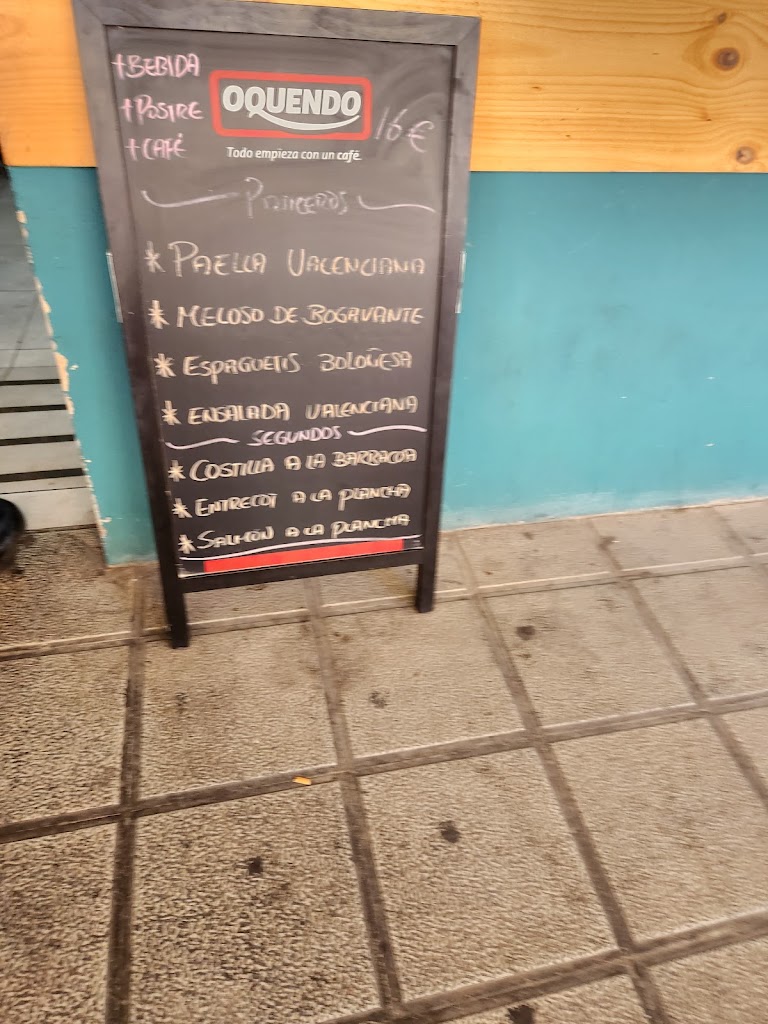 +BEBIDA
+POSTRE
+CAFÉ
OQUENDO
16€
Todo empieza con un café.
PRIMEROS
* PAELLA VALENCIANA
* MELOSO DE BOGAVANTE
* ESPAGUETIS BOLOÑESA
* ENSALADA VALENCIANA
SEGUNDOS
* COSTILLA A LA BARBACOA
* ENTRECOT A LA PLANCHA
* SALMÓN A LA PLANCHA